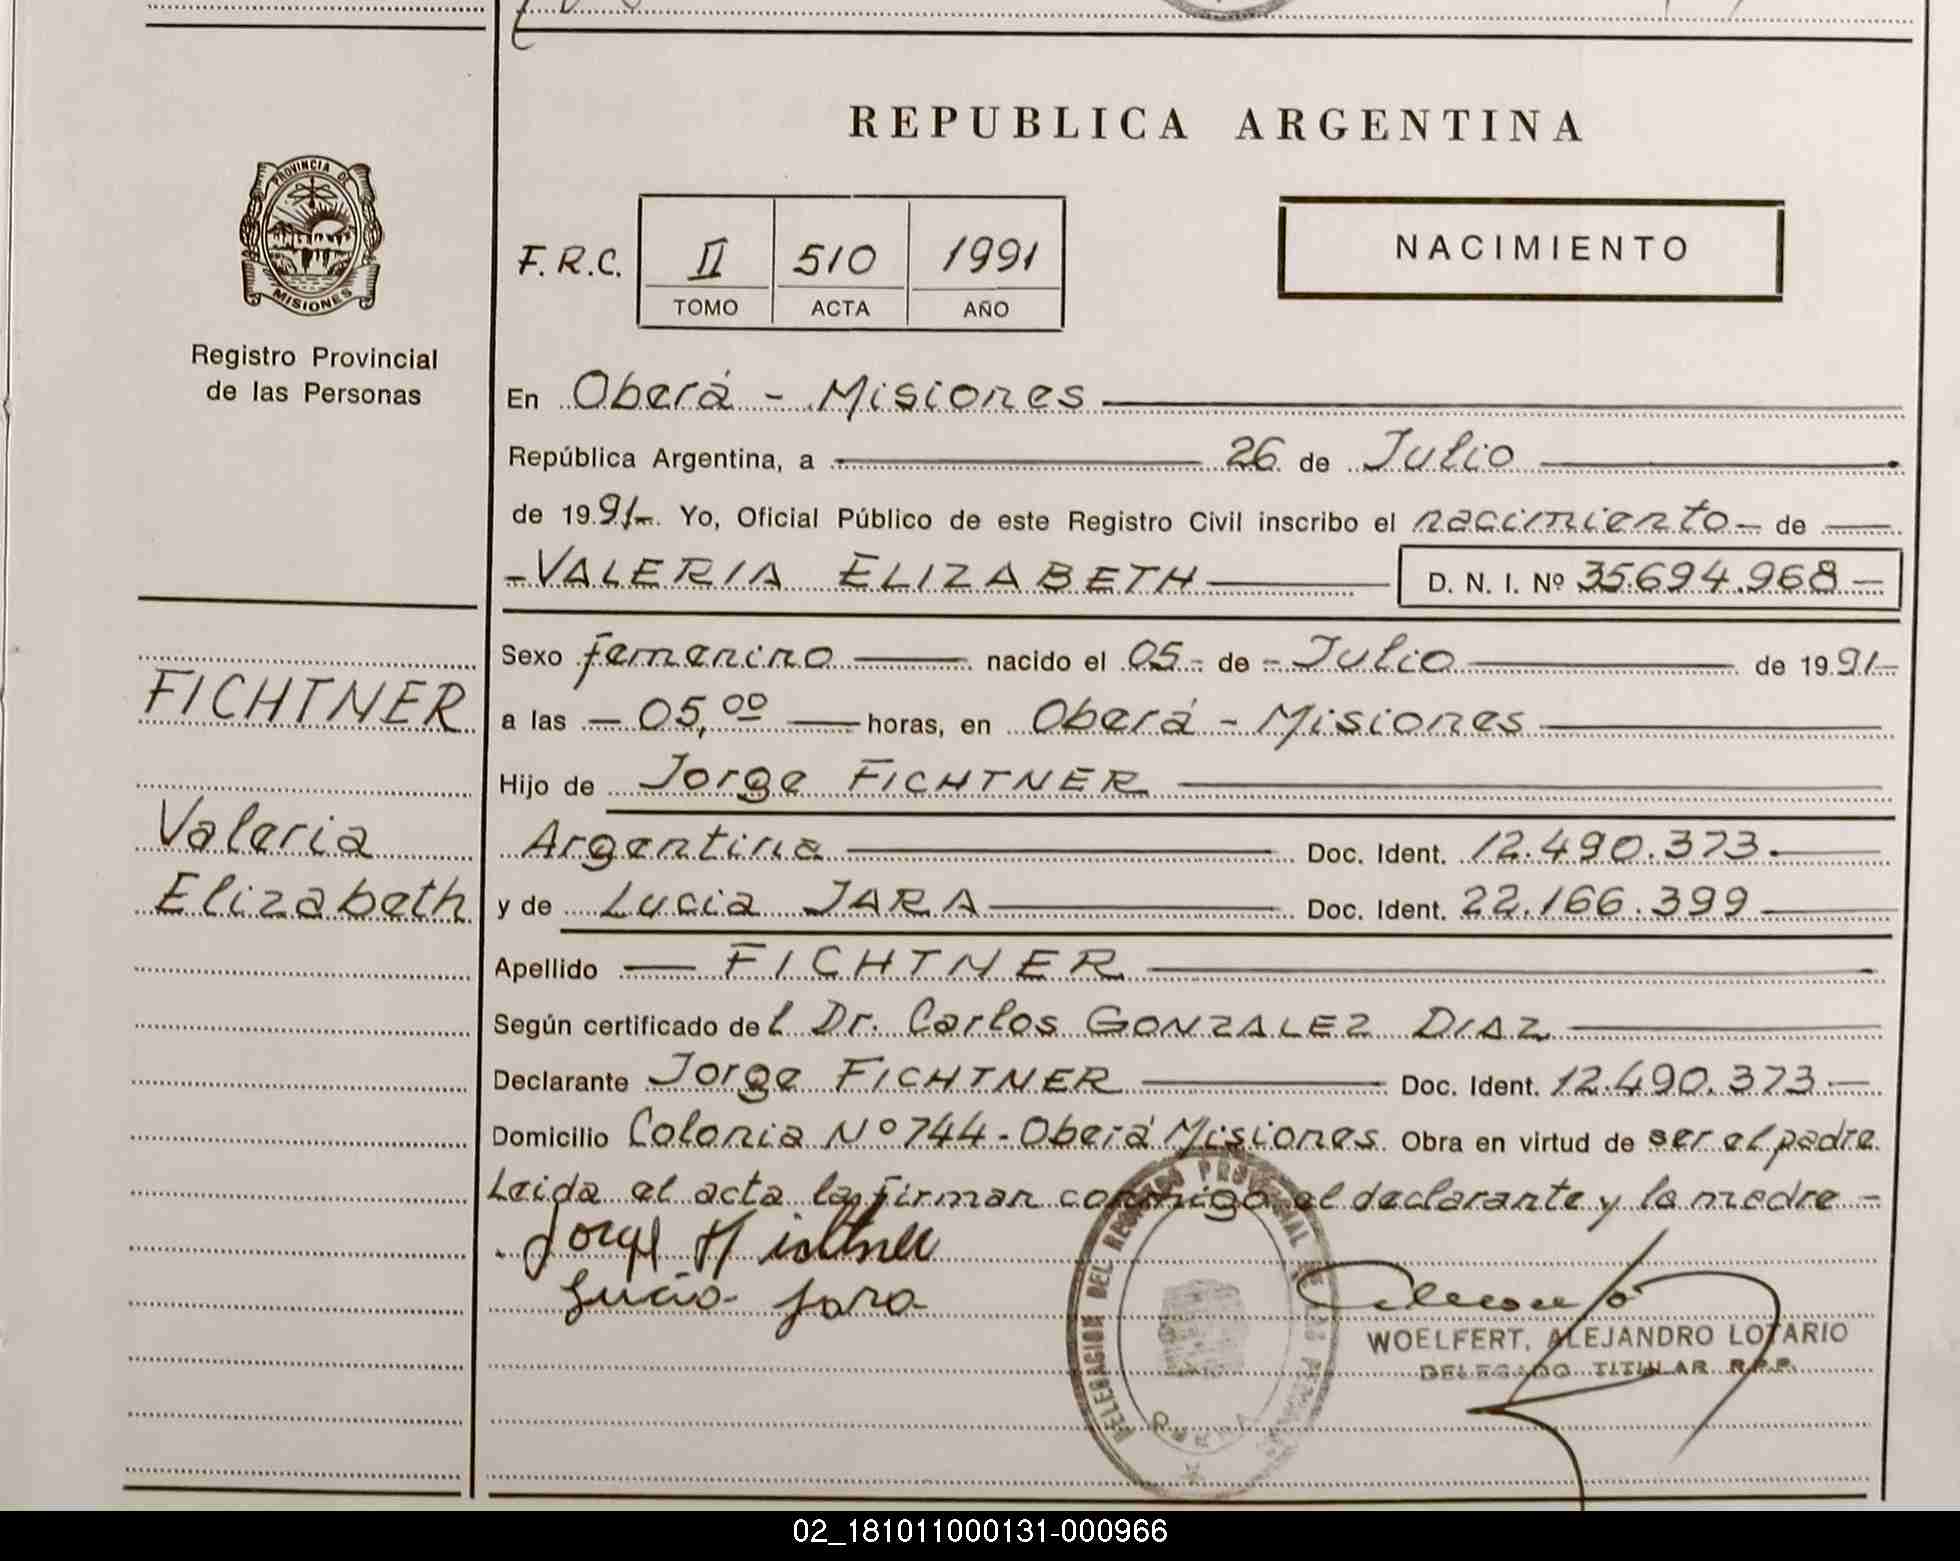 REPUBLICA ARGENTINA
PROVINCIA DE
MISIONES
Registro Provincial
de las Personas
F.R.C. II 510 1991
TOMO ACTA AÑO
NACIMIENTO
En Oberá - Misiones
República Argentina, a 26 de Julio
de 1991-. Yo, Oficial Público de este Registro Civil inscribo el nacimiento- de
-VALERIA ELIZABETH D. N. I. Nº 35.694.968-
Sexo femenino nacido el 05- de - Julio de 1991-
a las - 05,00 horas, en Oberá - Misiones
Hijo de Jorge FICHTNER
Argentina Doc. Ident. 12.490.373.
y de Lucia JARA Doc. Ident. 22.166.399
Apellido FICHTNER
Según certificado del Dr. Carlos GONZALEZ DIAZ
Declarante Jorge FICHTNER Doc. Ident. 12.490.373-
Domicilio Colonia Nº 744 - Oberá Misiones. Obra en virtud de ser el padre
Leida el acta la firman conmigo el declarante y la madre -
FICHTNER
Valeria
Elizabeth
Jorge Fichtner
Lucia Jara
DELEGACION DEL REGISTRO PROVINCIAL DE LAS PERSONAS
WOELFERT, ALEJANDRO LOTARIO
DELEGADO TITULAR R.P.P.
02_181011000131-000966